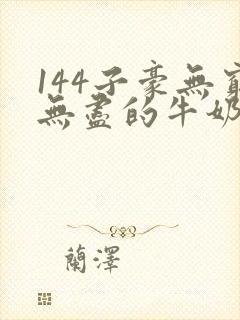 144子豪無窮
無盡的牛奶
蘭澤